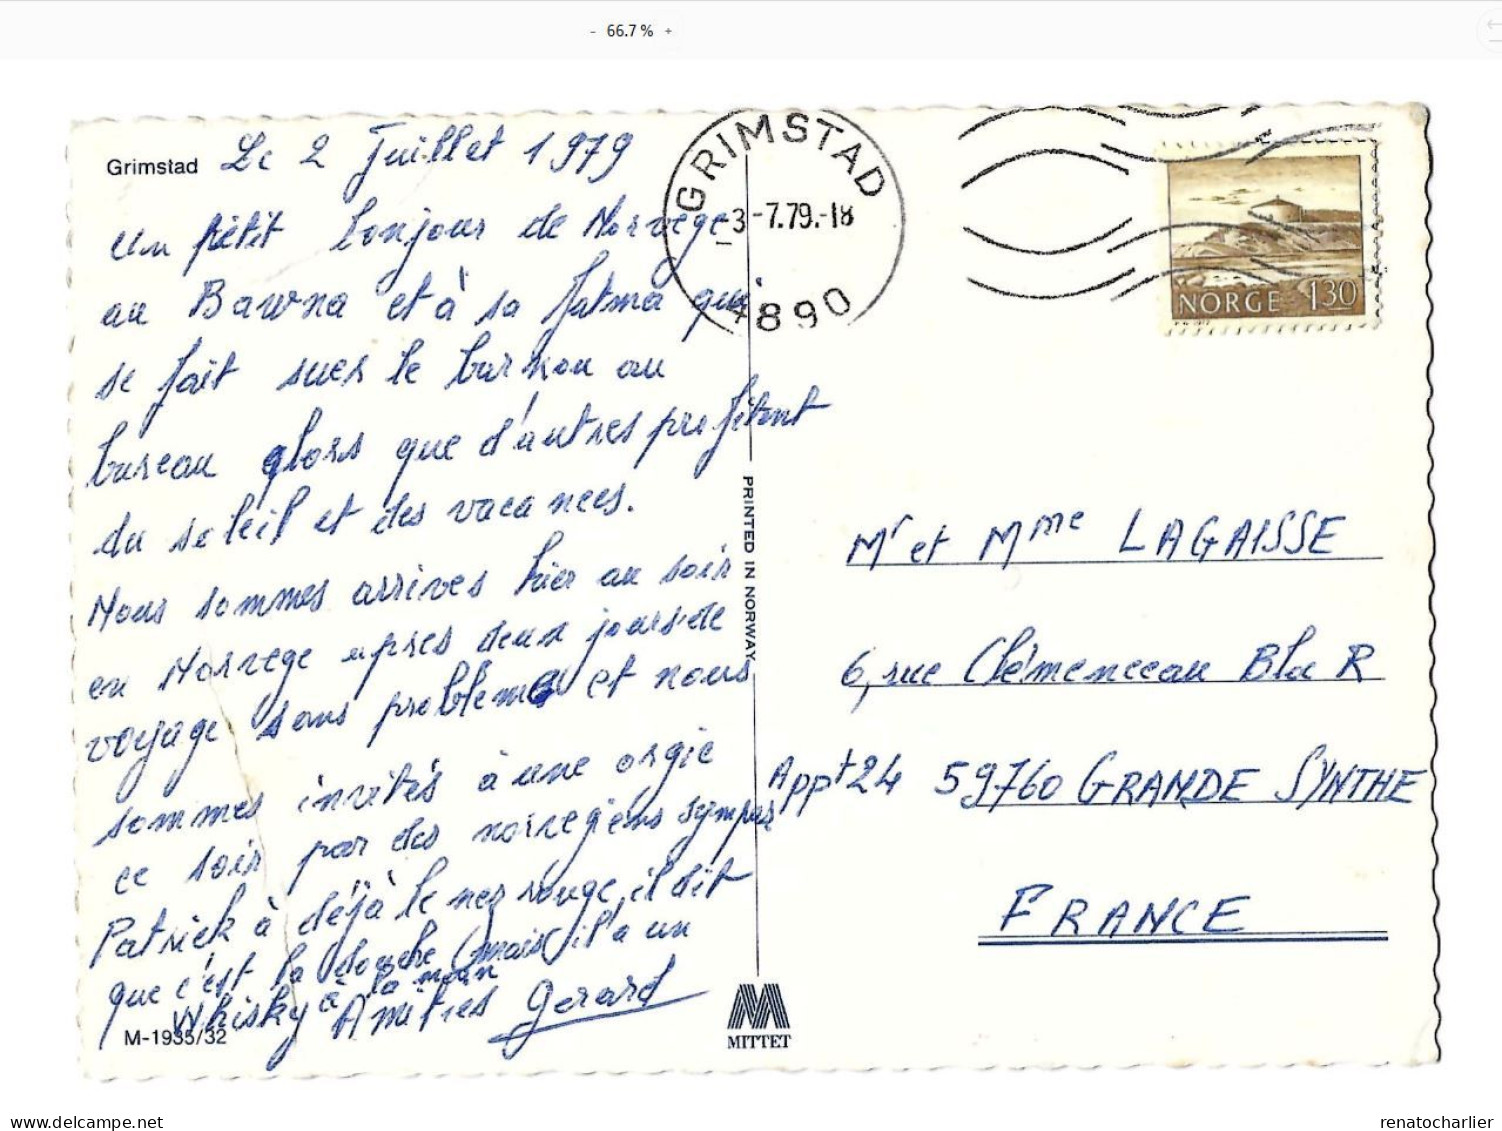 - 66.7 % +
Grimstad
Le 2 Juillet 1979
un petit bonjour de Norvège
au Bawna et à sa fatma qui
se fait suer le burnou au
bureau alors que d'autres profitent
du soleil et des vacances.
Nous sommes arrives hier au soir
en Norvege apres deux jours de
voyage sans problème et nous
sommes invités à une orgie
ce soir par des norvegiens sympas
Patrick à déjà le nez rouge, il dit
que c'est la douche (mais il a un
Whisky à la main
Amities Gerard
M-1935/32
GRIMSTAD
-3-7.79.-18
4890
NORGE 130
PRINTED IN NORWAY
Mr et Mme LAGAISSE
6, rue Clémenceeau Bla R
Appt 24 59760 GRANDE SYNTHE
FRANCE
MITTET
www.delcampe.net
renatocharlier